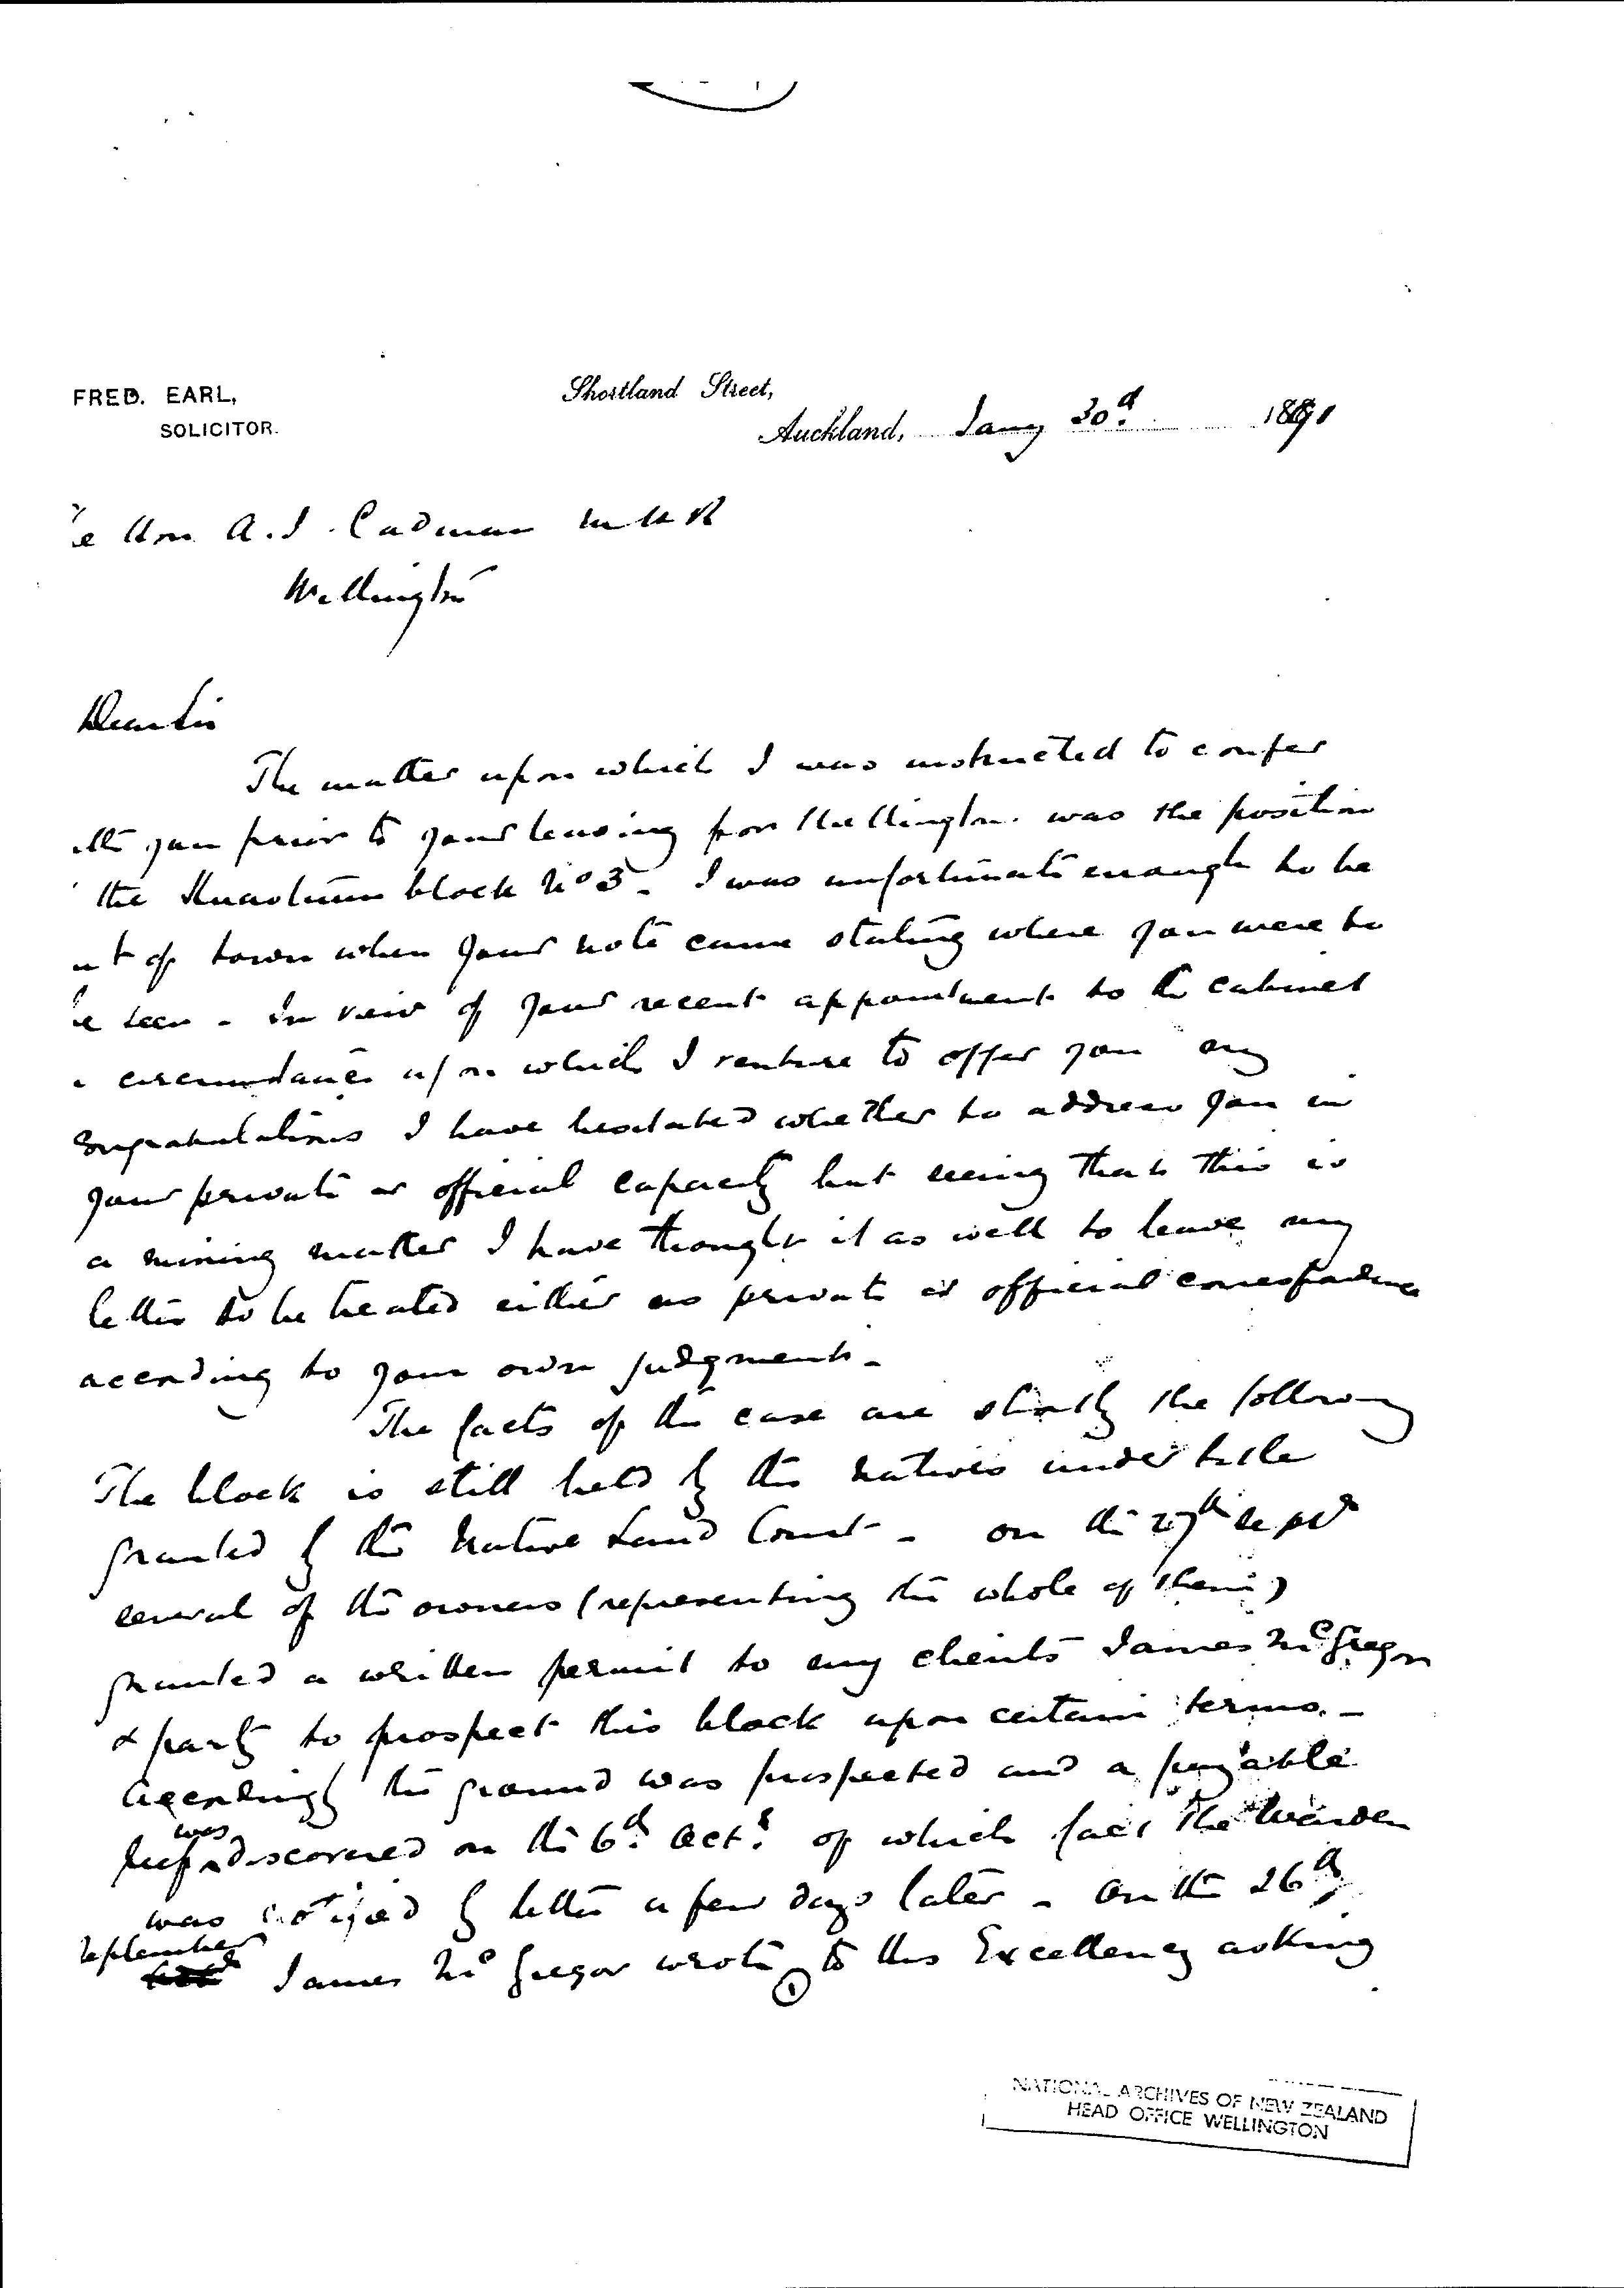 FRED. EARL,
SOLICITOR.
Shortland Street,
Auckland, Jany 30th 1891
e Hon A. J. Cadman M H R
Wellington
Dear Sir
The matter upon which I was instructed to confer
ith you prior to your leaving for Wellington was the position
the Kuaotunu block No 3 - I was unfortunate enough to be
ut of town when your note came stating where you were to
be seen - In view of your recent appointment to the cabinet
a circumstance upon which I venture to offer you my
congratulations I have hesitated whether to address you in
your private or official capacity but seeing that this is
a mining matter I have thought it as well to leave my
letter to be treated either as private or official correspondence
according to your own judgment -
The facts of the case are shortly the following
The block is still held by the natives under title
granted by the Native Land Court - on the 27th Sept
several of the owners (representing the whole of them)
granted a written permit to my clients James McGregor
& party to prospect this block upon certain terms. -
Accordingly the ground was prospected and a payable
reef was discovered on the 6th Octr of which fact the Warden
was notified by letter a few days later - On the 26th
September James McGregor wrote to His Excellency asking
1
NATIONAL ARCHIVES OF NEW ZEALAND
HEAD OFFICE WELLINGTON